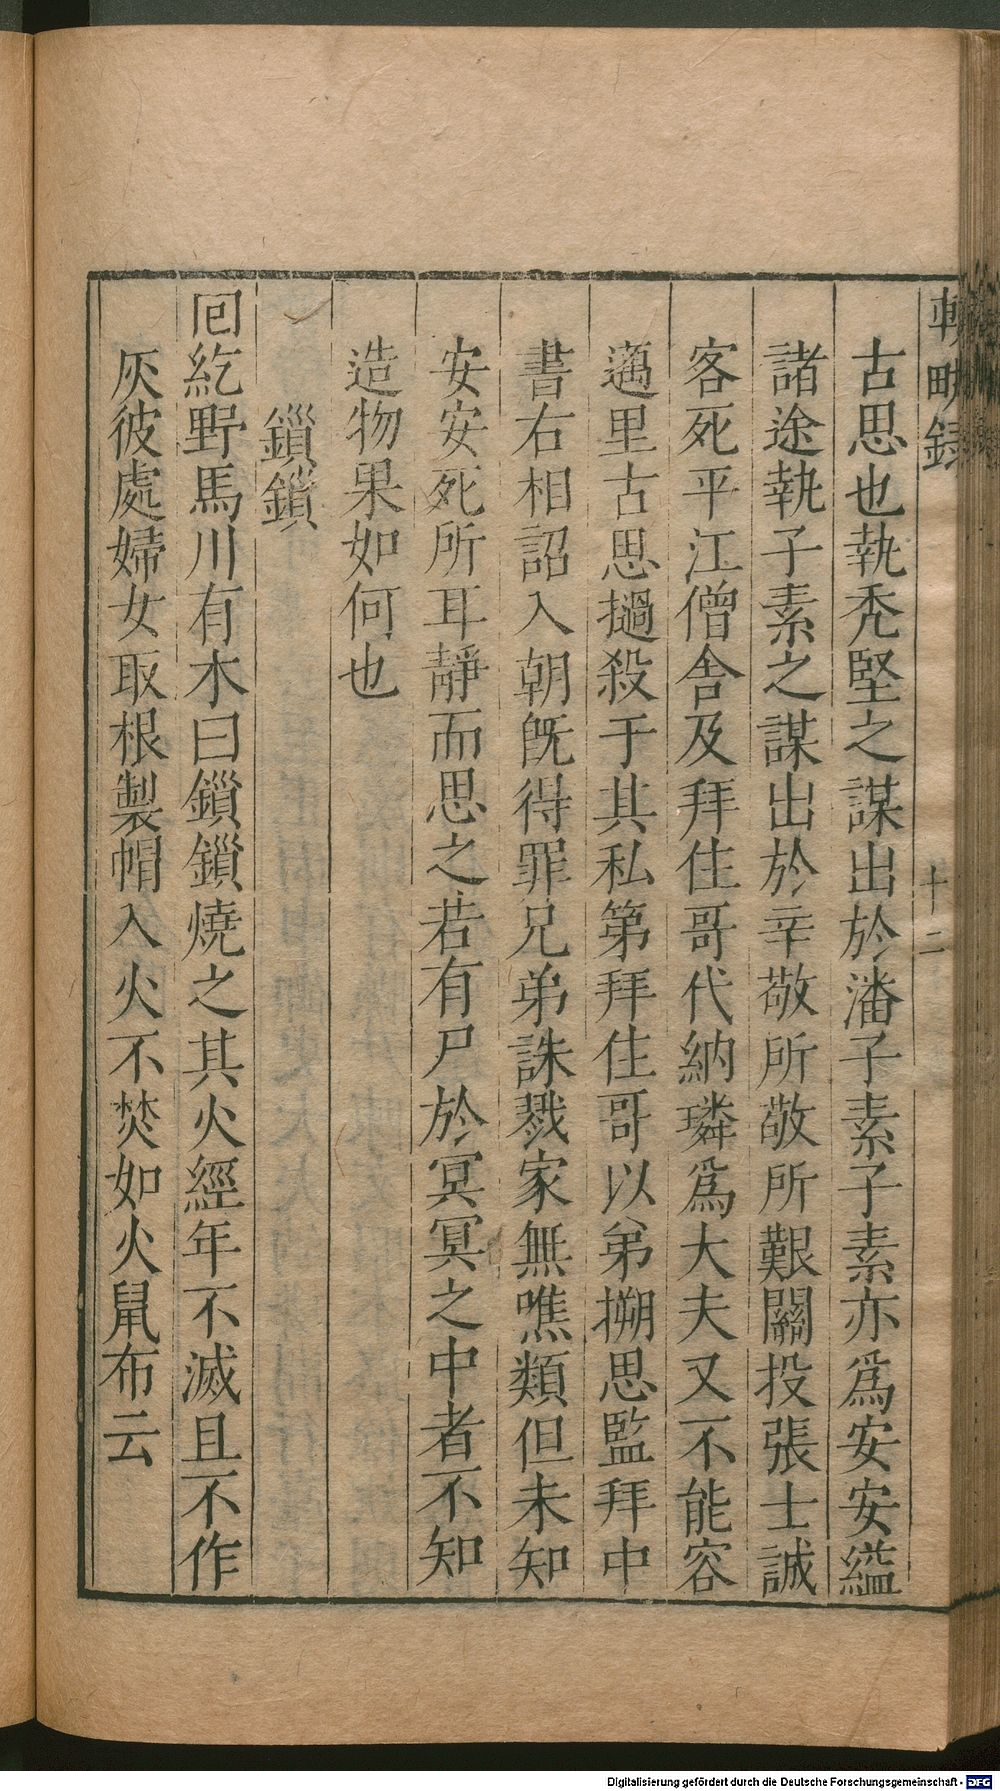 輟畊錄
十二
古思也執禿堅之謀出於潘子素子素亦爲安安縊
諸途執子素之謀出於辛敬所敬所艱關投張士誠
客死平江僧舍及拜住哥代納璘爲大夫又不能容
邁里古思撾殺于其私第拜住哥以弟搠思監拜中
書右相詔入朝旣得罪兄弟誅戮家無噍類但未知
安安死所耳靜而思之若有尸於冥冥之中者不知
造物果如何也
鎻鎻
回紇野馬川有木曰鎻鎻燒之其火經年不滅且不作
灰彼處婦女取根製帽入火不焚如火鼠布云
Digitalisierung gefördert durch die Deutsche Forschungsgemeinschaft - DFG